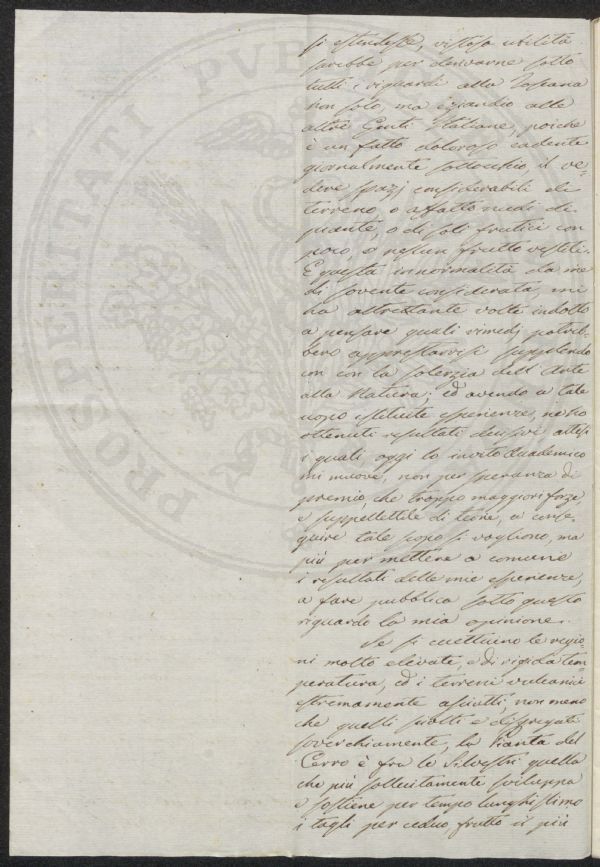 si estendesse, vistosa utilità
sarebbe per derivarne sotto
tutti i riguardi alla Toscana
non solo, ma eziandio alle
altre Genti Italiane, poichè
è un fatto doloroso cadente
giornalmente sottocchio, il ve-
dere spazj considerabili di
terreno, o affatto nudi di
piante, o di soli frutici con
poco, o nessun frutto vestiti.
E questa innormalità da me
di sovente considerata, mi
ha altrettante volte indotto
a pensare quali rimedj potreb-
bero apprestarvisi supplendo
con la solerzia dell'Arte
alla Natura; ed avendo a tale
uopo istituite esperienze, ne ho
ottenuti resultati decisivi attesi
i quali, oggi lo invito Accademico
mi muove, non per speranza di
premio, che troppo maggiori forze,
e suppellettile di teorie, a conse-
guire tale scopo si vogliono, ma
più per mettere a comune
i resultati delle mie esperienze,
a fare pubblica sotto questo
riguardo la mia opinione.
Se si eccettuino le regio-
ni molto elevate, e di rigida tem-
peratura, ed i terreni vulcanici
estremamente asciutti, non meno
che quelli sciolti e disgregati
soverchiamente, la Pianta del
Cerro è fra le Silvestri quella
che più sollecitamente sviluppa
e sostiene per tempo lunghissimo
i tagli per ceduo, frutto il più
PROSPERITATI PVB